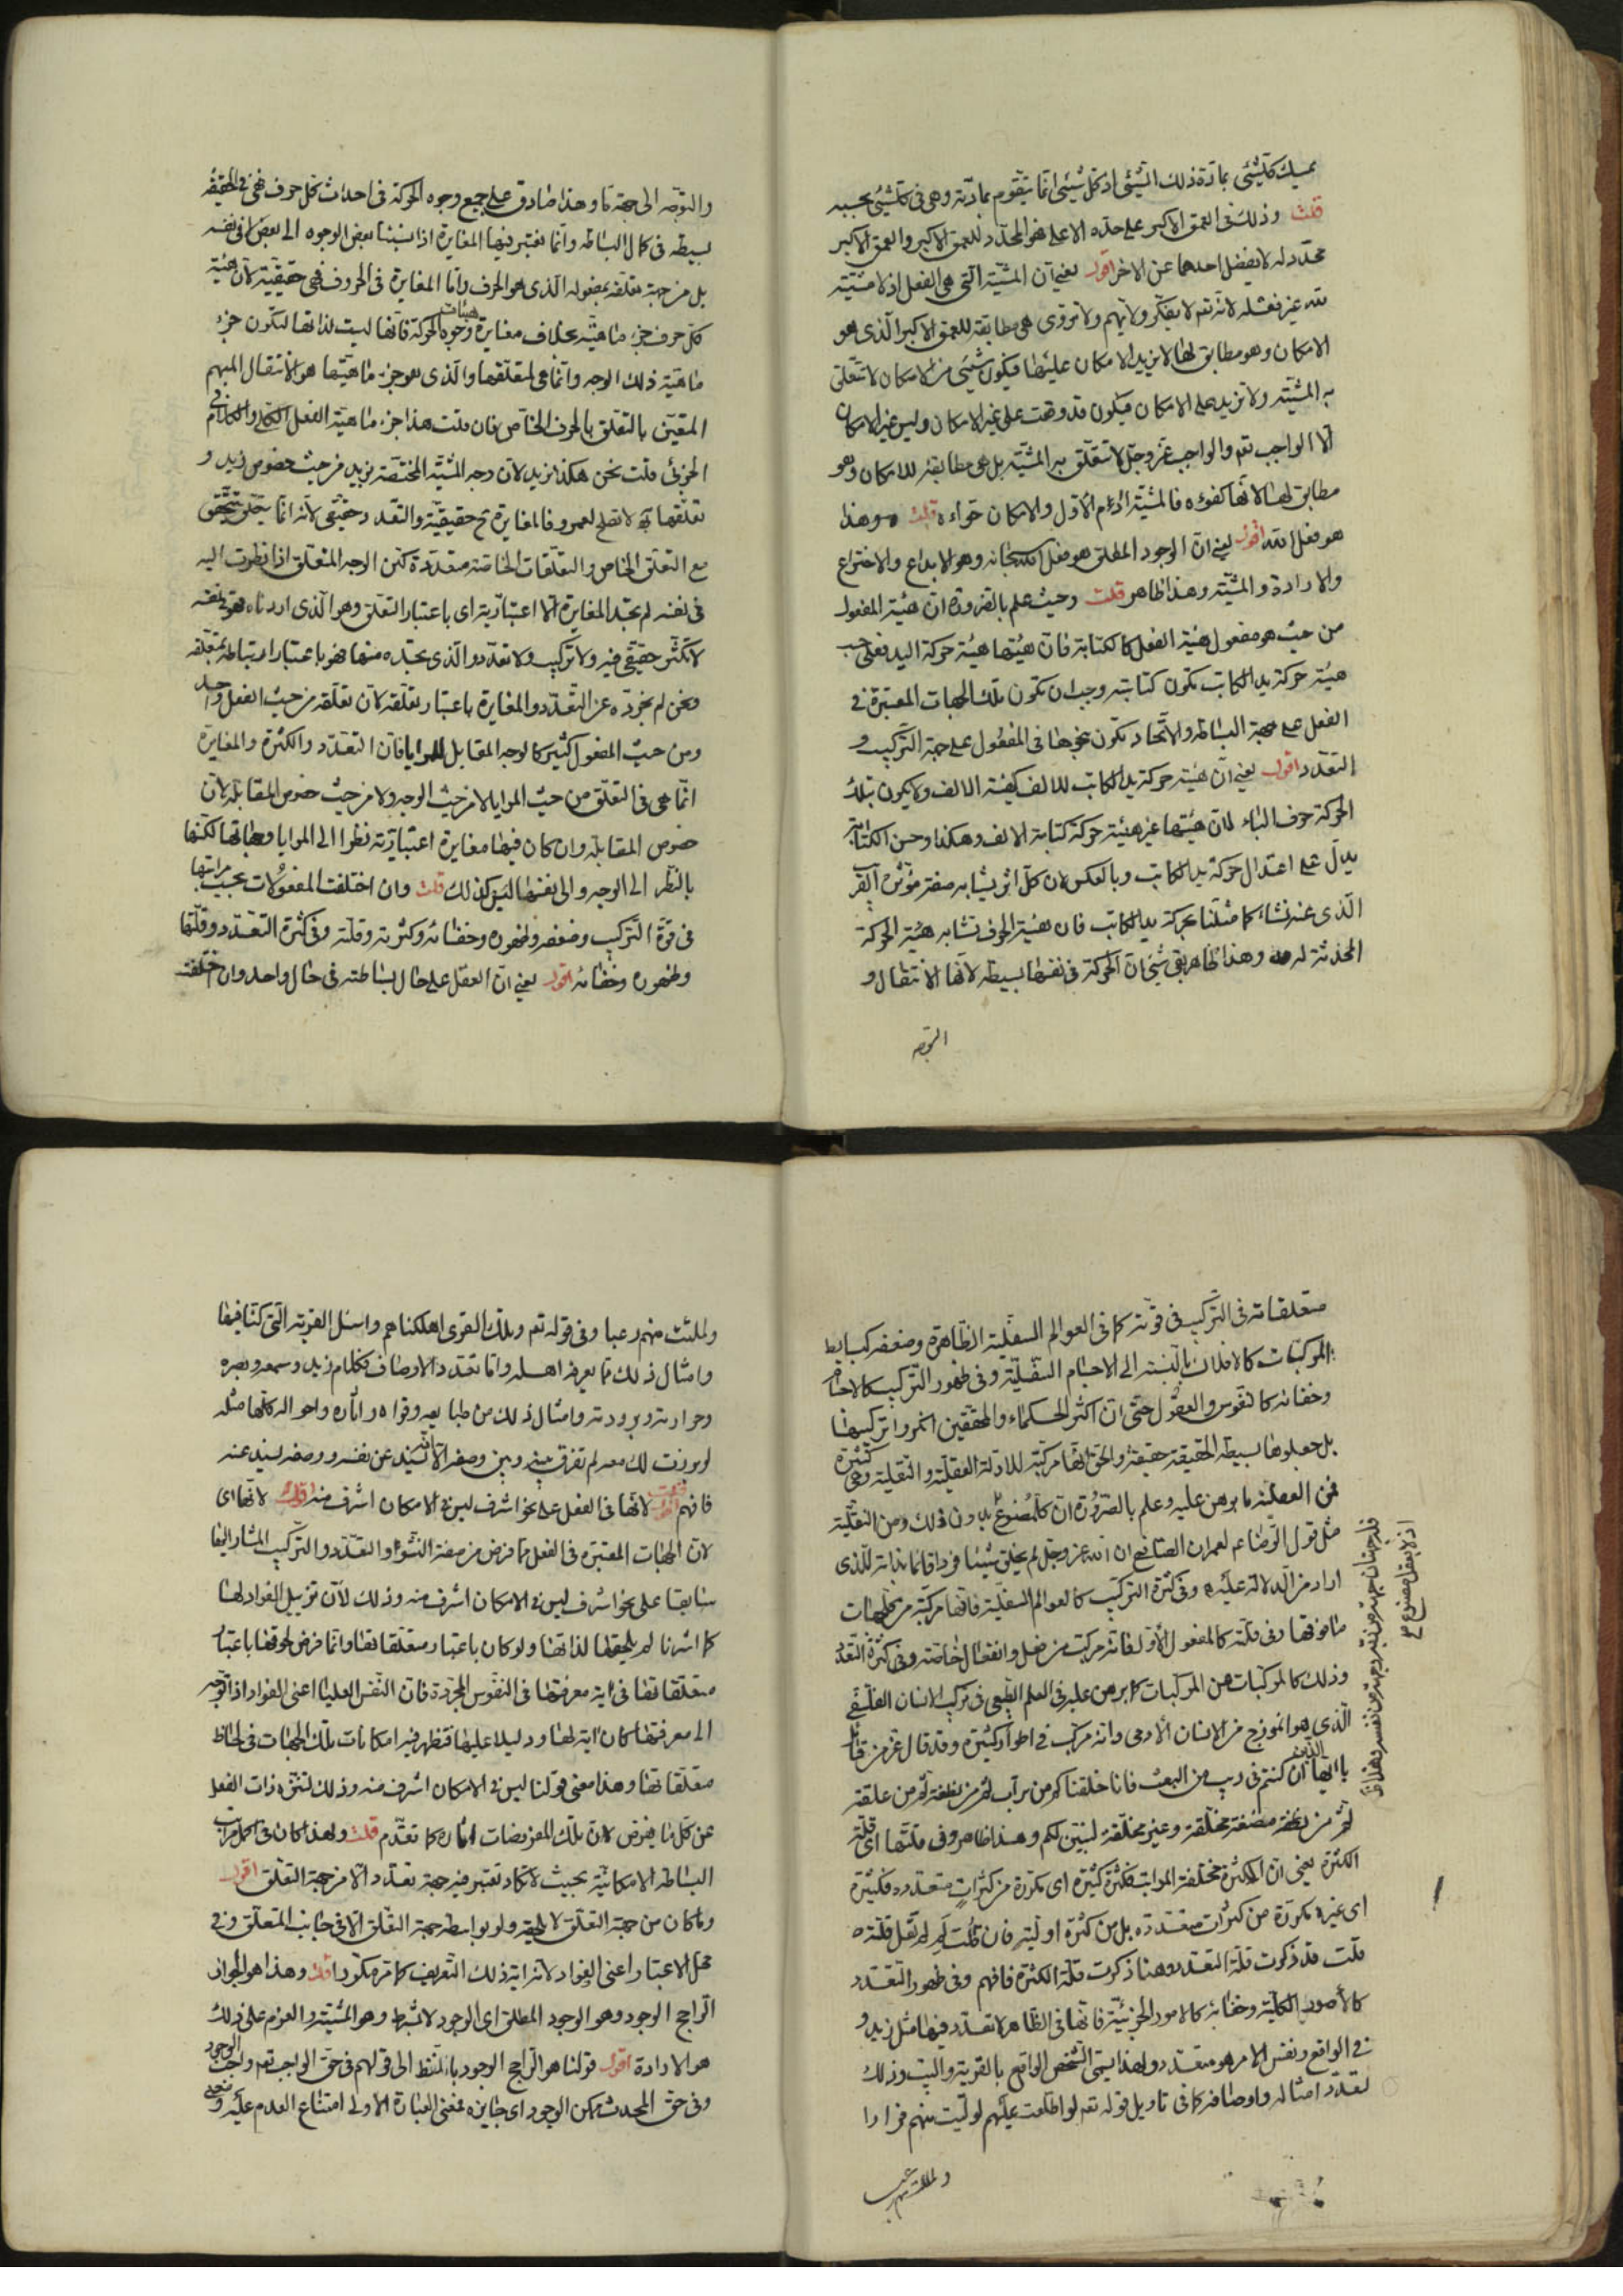 يمسك كل شيئ بمادة ذلك الشيئ اذ كل شيئ انما يتقوم بمادته وهي في كل شيئ بحسبه
قلت وذلك في العمق الاكبر على حده الاعلى فهو المحدّد للعمق الاكبر والعمق الاكبر
محدّد له لا يفضل احدهما عن الاخر اقول يعني ان المشية التي هي الفعل اذ لا مشيّة
لله غير فعله لانه تعم لا يفكّر ولا يهم ولا يروّى هي مطابقة للعمق الاكبر الذى هو
الامكان وهو مطابق لها لا يزيد الامكان عليها فيكون شيئ من الامكان لا تتعلّق
به المشيّة ولا تزيد على الامكان فيكون قد وقعت على غير الامكان وليس غير الامكان
الا الواجب تعم والواجب عز وجل لا تتعلّق به المشيّة بل هي مطابقة للامكان وهو
مطابق لها لانها كفوءه فالمشيّة ادم الاول والامكان حواءه قلت وهذا
هو فعل الله اقول يعني ان الوجود المطلق هو فعل الله سبحانه وهو الابداع والاختراع
والارادة والمشيّة وهذا ظاهر قلت وحيث علم بالضرورة ان هيئة المفعول
من حيث هو مفعول هيئة الفعل كالكتابة فان هيئتها هيئة حركة اليد فعلى حسب
هيئة حركة يد الكاتب تكون كتابته وجب ان تكون تلك الجهات المعتبرة في
الفعل على جهة البساطة والاتحاد تكون بنحوها في المفعول على جهة التركيب و
التعدّد اقول يعني ان هيئة حركة يد الكاتب للالف كهيئة الالف ولا يكون بتلك
الحركة حرف الباء لان هيئتها غير هيئة حركة كتابة الالف وهكذا وحسن الكتابة
يدل على اعتدال حركة يد الكاتب وبالعكس لان كل اثر يشابه صفة مؤثره القريب
الذى عنه نشاء كما مثلنا بحركة يد الكاتب فان هيئة الحرف تشابه هيئة الحركة
المحدثة له وهذا ظاهر بقى شيئ ان الحركة في نفسها بسيطة لانها الانتقال و
التوجه
والتوجّه الى جهة ما وهذا صادق على جميع وجوه الحركة في احداث كل حرف فهي في الحقيقة
بسيطة في كمال البساطة وانما نعتبر فيها المغايرة اذا نسبنا بعض الوجوه الى بعض لا في نفسه
بل من جهة تعلّقه بمفعوله الذى هو الحرف واما المغايرة في الحروف فهي حقيقيّة لان هيئة
كل حرف جزء ماهيّته بخلاف مغايرة هيئات وجوه الحركة فانها ليست لذاتها لتكون جزء
ماهيّة ذلك الوجه وانما هي لمتعلّقها والذى هو جزء ماهيّتها هو الانتقال المبهم
المتعيّن بالتعلّق بالحرف الخاص فان قلت هذا جزء ماهيّة الفعل الكلي والكلام في
الجزئي قلت نحن هكذا نريد لان وجه المشيّة المختصّة بزيد من حيث خصوص زيد و
تعلّقها به لا تصلح لعمرو فالمغايرة ح حقيقيّة والتعدّد حقيقي لانه انما يتعلّق يتحقّق
مع التعلّق الخاص والتعلّقات الخاصّة متعدّدة لكن الوجه المتعلّق اذا نظرت اليه
في نفسه لم تجد المغايرة الا اعتباريّة اى باعتبار التعلّق وهو الذى اردناه فهو في نفسه
لا تكثّر حقيقي فيه ولا تركيب ولا تعدّد والذى تجده منها فهو باعتبار ارتباطه بمتعلّقه
ونحن لم نجرّده عن التعدّد والمغايرة باعتبار تعلّقه لان تعلّقه من حيث الفعل واحد
ومن حيث المفعول كثير كالوجه المقابل للمرايا فان التعدّد والكثرة والمغايرة
انما هي في التعلّق من حيث المرايا لا من حيث الوجه ولا من حيث خصوص المقابلة لان
خصوص المقابلة وان كان فيها مغايرة اعتباريّة نظرا الى المرايا وجهاتها لكنها
بالنظر الى الوجه والى نفسها ليس كذلك قلت وان اختلفت المفعولات بحسب مراتبها
في قوّة التركيب وضعفه وظهوره وخفائه وكثرته وقلّته وفي كثرة التعدّد وقلّتها
وظهوره وخفائه اقول يعني ان الفعل على حال بساطته في حال واحد وان اختلفت
متعلقاته في التركيب في قوّته كما في العوالم السفليّة الظاهرة وضعفه كبسايط
المركبات كالافلاك بالنسبة الى الاجسام السفليّة وفي ظهور التركيب كالاجسام
وخفائه كالنفوس والعقول حتى ان اكثر الحكماء والمحققين انكروا تركيبها
بل جعلوها بسيطة الحقيقة حقيقة والحق انها مركّبة للادلة العقليّة والنقلية وهي كثيرة
فمن العقلية ما برهن عليه وعلم بالضرورة ان كل مصنوع بدون ذلك ومن النقليّة
مثل قول الرضا عم لعمران الصابئ ان الله عز وجل لم يخلق شيئا فردا قائما بذاته للذى
اراد من الدلالة عليه وفي كثرة التركيب كالعوالم السفليّة فانها مركبة من كل جهات
ما فوقها وفي قلّته كالمفعول الاوّل فانه مركّب من فعل وانفعال خاصّة وفي كثرة التعدّد
وذلك كالمركبات من المركبات كما برهن عليه في العلم الطبيعي في تركيب الانسان الفلسفي
الذى هو انموذج من الانسان الآدمى وانه مركب في اطوار كثيرة وقد قال عز من قائل
يا ايها الناس ان كنتم في ريب من البعث فانا خلقناكم من تراب ثم من نطفة ثم من علقة
ثم من مضغة مخلّقة وغير مخلّقة لنبيّن لكم وهذا ظاهر وفي قلّتها اى قلّة
الكثرة يعني ان الكثرة مختلفة المراتب فكثرة كثيرة اى مكرّرة من كثرات متعدّدة وكثيرة
اى غير مكرّرة من كثرات متعدّدة بل من كثرة اوليّة فان قلت لم لم تقل قلّته
قلت قد ذكرت قلّة التعدّد وهنا ذكرت قلّة الكثرة فافهم وفي ظهور التعدّد
كالأمور الكليّة وخفائه كالامور الجزئيّة فانها في الظاهر لا تعدّد فيها مثل زيد و
في الواقع ونفس الامر هو متعدّد ولهذا يسمّى الشخص الواقع بالقرية والبيت وذلك
لتعدّد امثاله واوصافه كما في تاويل قوله تعم لو اطّلعت عليهم لولّيت منهم فرارا
ولملئت منهم
ولملئت منهم رعبا وفي قوله تعم وتلك القرى اهلكناهم واسئل القرية التي كنّا فيها
وامثال ذلك مما يعرفه اهله واما تعدّد الاوصاف فككلام زيد وسمعه وبصره
وحرارته وبرودته وامثال ذلك من طبايعه وقواه واثاره واحواله كلّها مثله
لو برزت لك معه لم تفرق بينه وبين وصفه الا انه يسند عن نفسه ووصفه يسند عنه
فافهم قلت لانها في الفعل على نحو اشرف ليس في الامكان اشرف منه اقول لانها اى
لان الجهات المعتبرة في الفعل مما فرض من صفة النشوء والتعدّد والتركيب المشار اليها
سابقا على نحو اشرف ليس في الامكان اشرف منه وذلك لان تزييل الفواد لها
كما اشرنا لم يلحقها لذاتها ولو كان باعتبار متعلّقاتها وانما فرض لحوقها باعتبار
متعلّقاتها في اية معرفتها في النفوس المجرّدة فان النفس العليا اعني الفواد اذا توجّه
الى معرفتها كان اية لها ودليلا عليها فتظهر فيه امكانات تلك الجهات في لحاظ
متعلّقاتها وهذا معنى قولنا ليس في الامكان اشرف منه وذلك لتنزّه ذات الفعل
عن كل ما يفرض لان تلك المفروضات اثاره كما تقدّم قلت ولهذا كان في اكمل مراتب
البساطة الامكانيّة بحيث لا تكاد تعتبر فيه جهة تعدّد الا من جهة التعلّق اقول
وما كان من جهة التعلّق لا يلحقه ولو بواسطة جهة التعلّق الا في جانب المتعلّق وفي
محل الاعتبار اعنى الفواد لانه اية ذلك التعريف كما مر مكررا قلت وهذا هو الجواز
الراجح الوجود وهو الوجود المطلق اى الوجود لا بشرط وهو المشيّة والعزم على ذلك
هو الارادة اقول قولنا هو الراجح الوجود بالنظر الى قولهم في حق الواجب تعم واجب الوجود
وفي حق المحدث ممكن الوجود اى جايزه فمعنى العبارة الاولى امتناع العدم عليه ومعنى